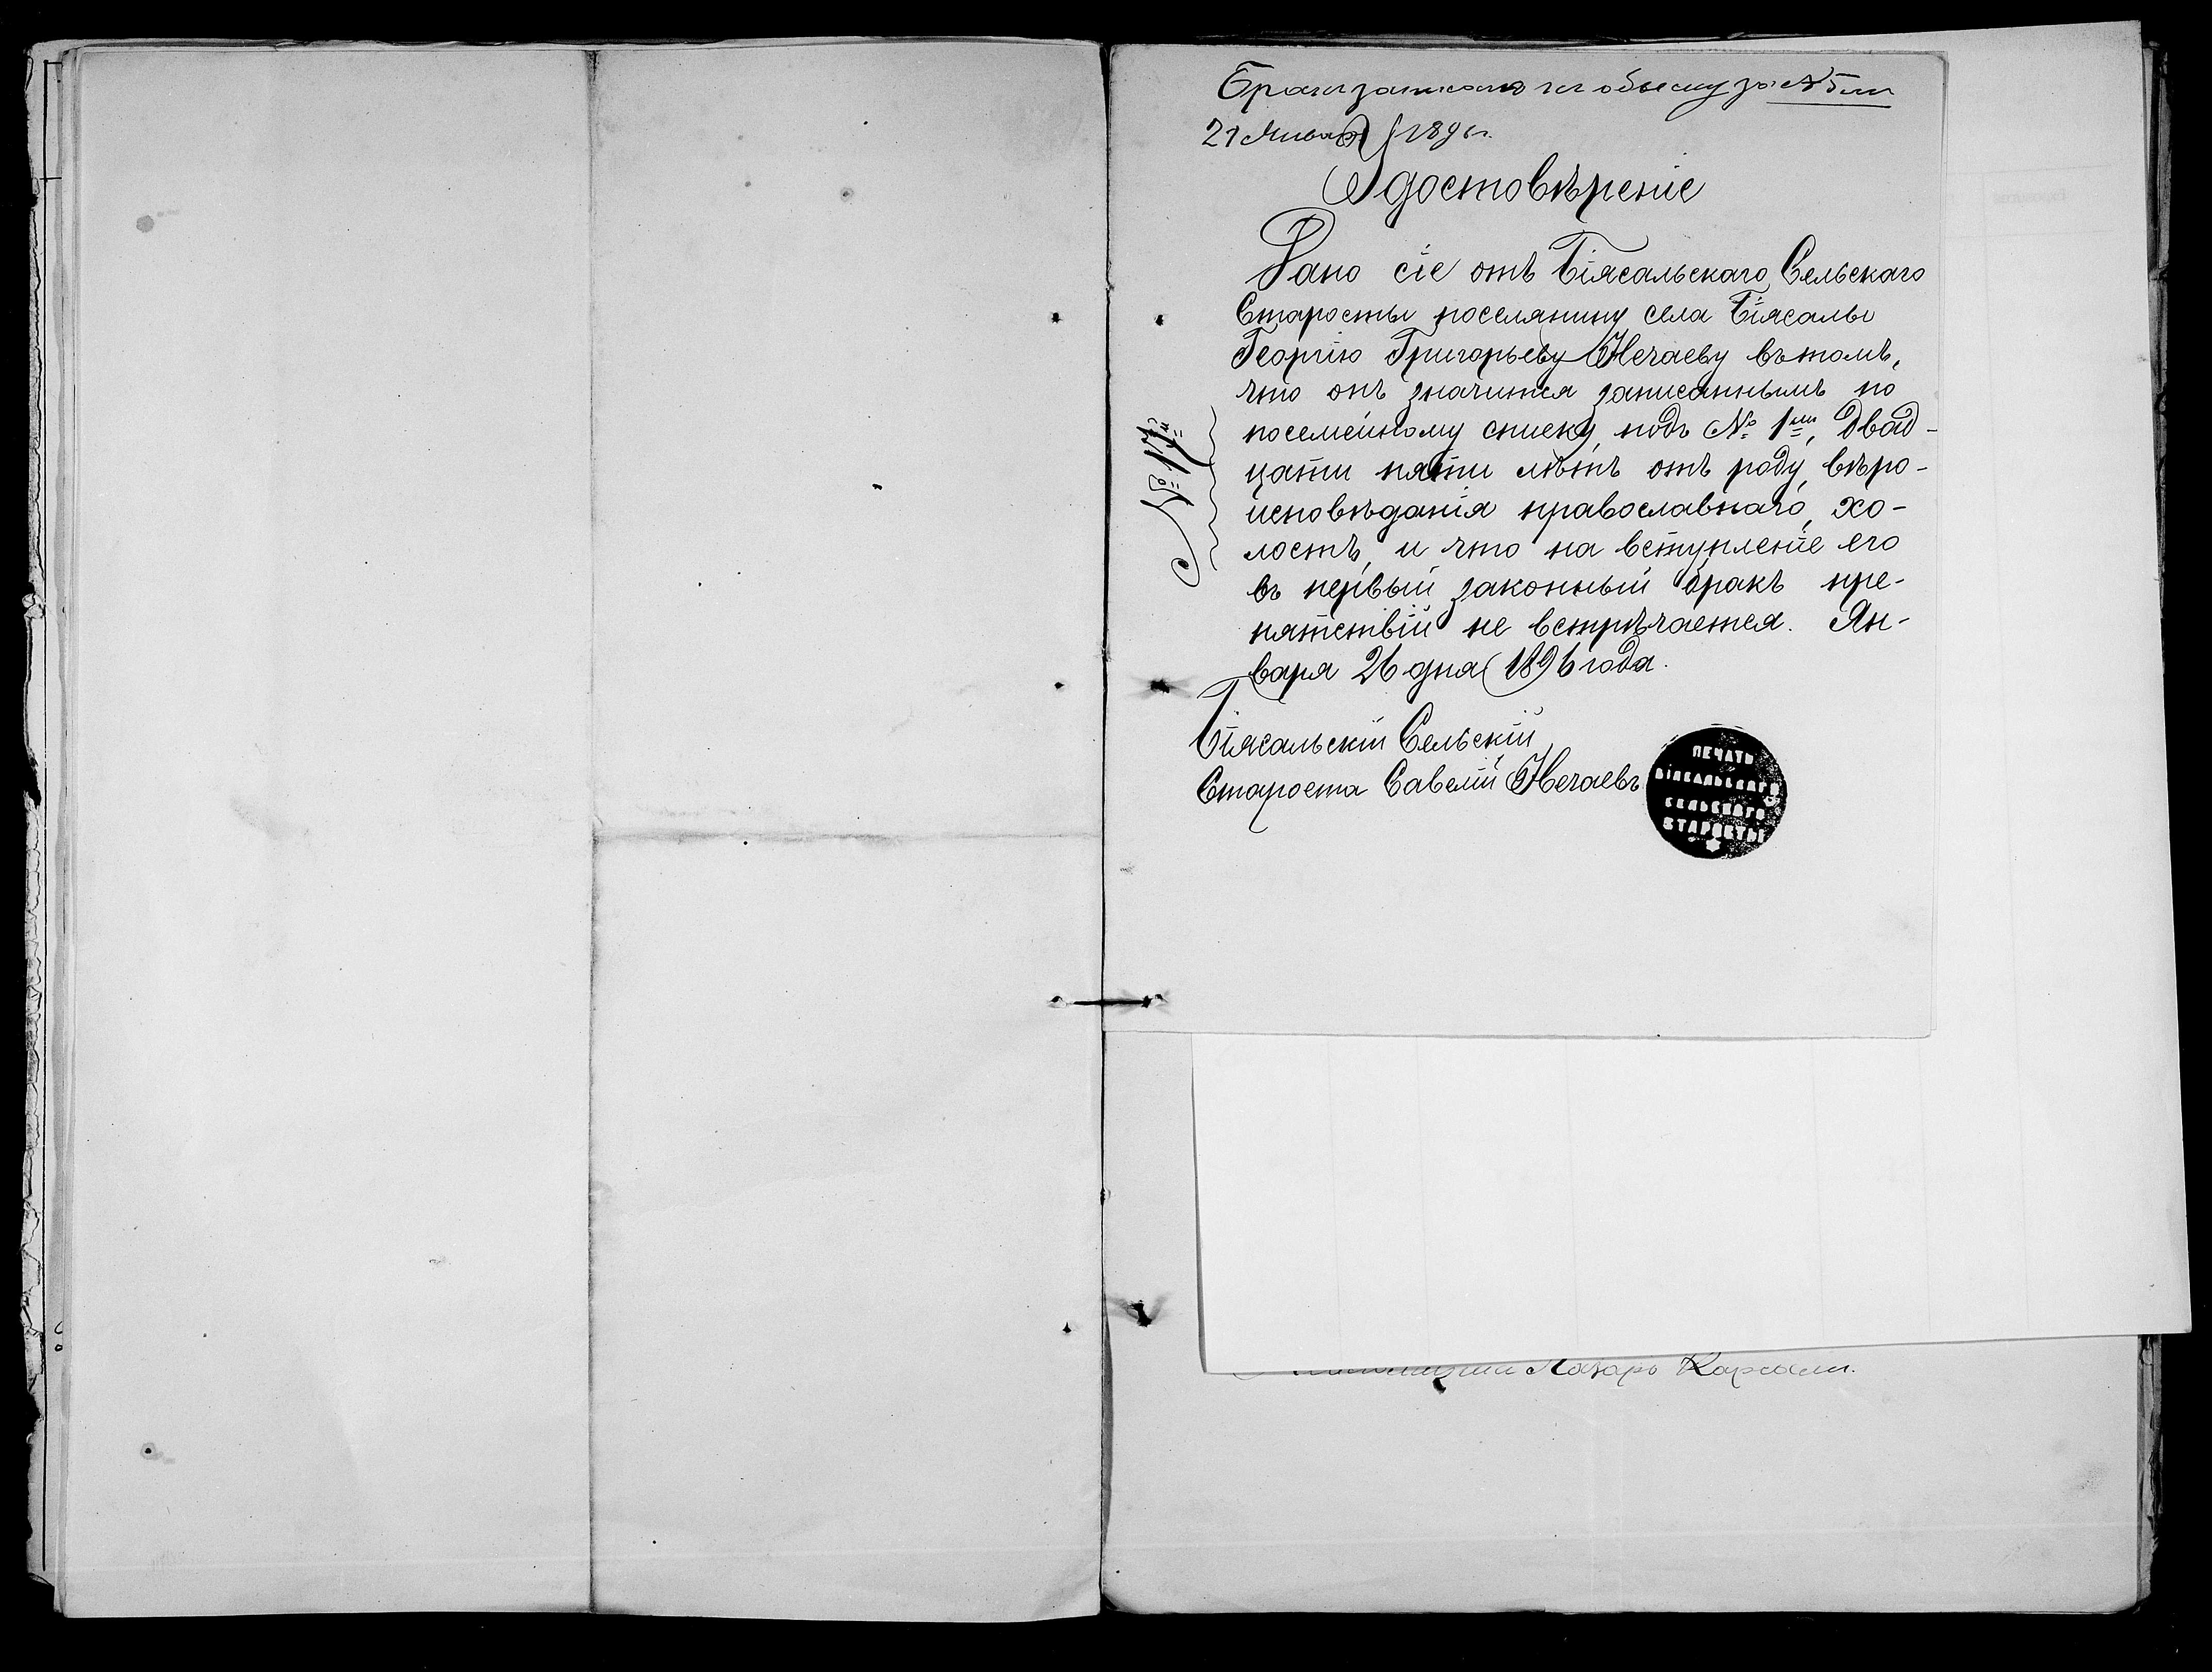 Бракъ записанъ по обыску за № 5 мъ
21 Января 1896 г.
Удостовѣреніе
Дано сіе отъ Біясальскаго Сельскаго
Старосты поселянину села Біясалы
Георгію Григорьеву Нечаеву въ томъ,
что онъ значится записаннымъ по
посемейному списку, подъ № 1мъ, двад-
цати пяти лѣтъ отъ роду, вѣро-
исповѣданія православнаго, хо-
лостъ, и что на вступленіе его
въ первый законный бракъ пре-
пятствій не встрѣчается. Ян-
варя 26 дня 1896 года.
Біясальскій Сельскій
Староста Савелій Нечаевъ
ПЕЧАТЬ
БІЯСАЛЬСКАГО
СЕЛЬСКАГО
СТАРОСТЫ
№ 1й
Лазарь